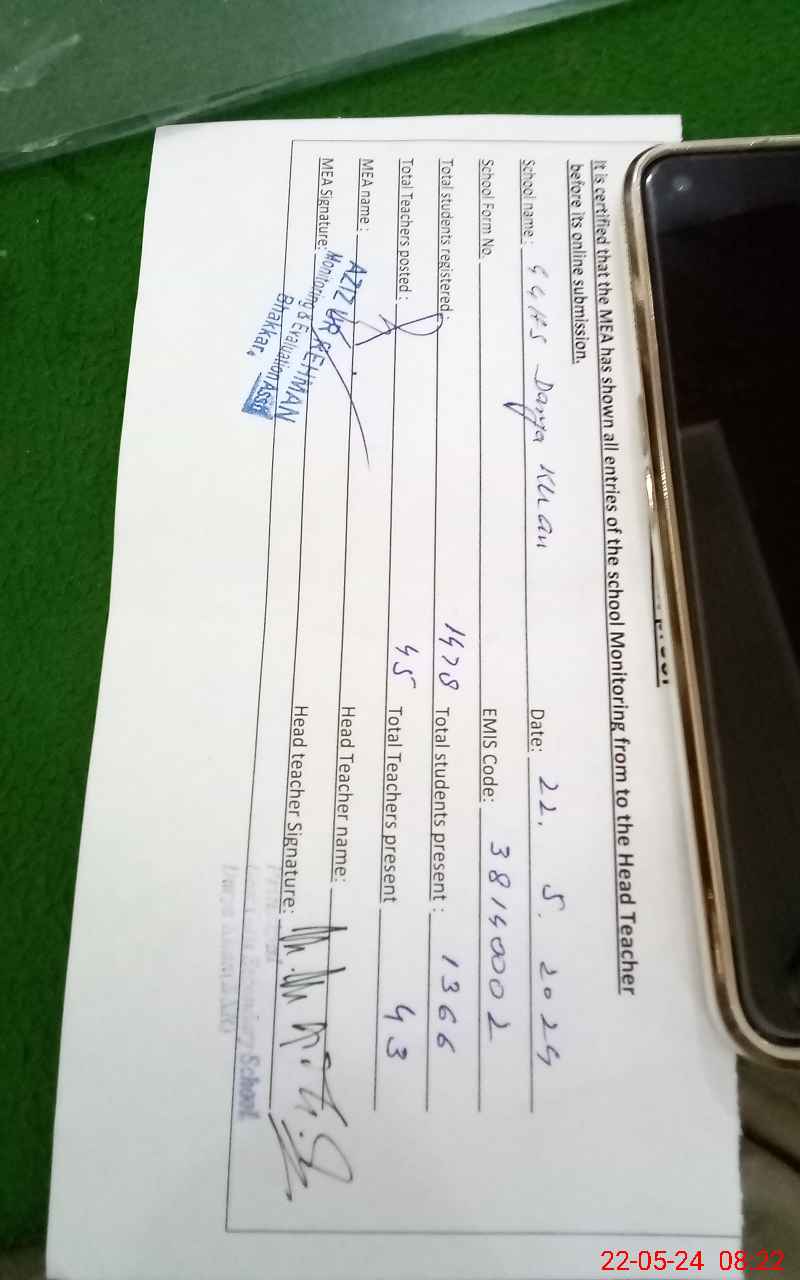 It is certified that the MEA has shown all entries of the school Monitoring from to the Head Teacher
before its online submission.
School name : GGHS Darya Khan Date: 22. 5. 2024
School Form No. EMIS Code: 38140002
Total students registered : 1478 Total students present : 1366
Total Teachers posted : 45 Total Teachers present 43
MEA name : AZIZ UR REHMAN Head Teacher name:
MEA Signature: Head teacher Signature:
Monitoring & Evaluation Asstt
Bhakkar.
School
22-05-24 08:22